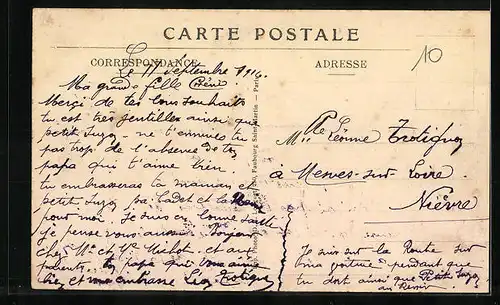 CARTE POSTALE
CORRESPONDANCE
ADRESSE
10
Le 11 Septembre 1914.
Ma grande fille chérie
Merci de tes bons souhaits
tu est très gentilles ainsi que
petit Suzo - ne t'ennuies tu
pas trop de l'absence de ton
papa qui t'aime bien.
tu embrasseras ta maman et
petit Suzo pa. Cadet et la
pour moi. Je suis en bonne santé
Je pense vous aussi. Bonjour
chez Mr et Me Michot. et aux
parents. ton papa qui vous aime
bien et vous embrasse Léon Trotignon
Melle Léonne Trotignon
à Mesves-sur-Loire.
Nièvre
Je suis sur la Route sur
ma voiture pendant que
tu dort ainsi que Petit Suzo
au Revoir
Faubourg Saint-Martin - Paris